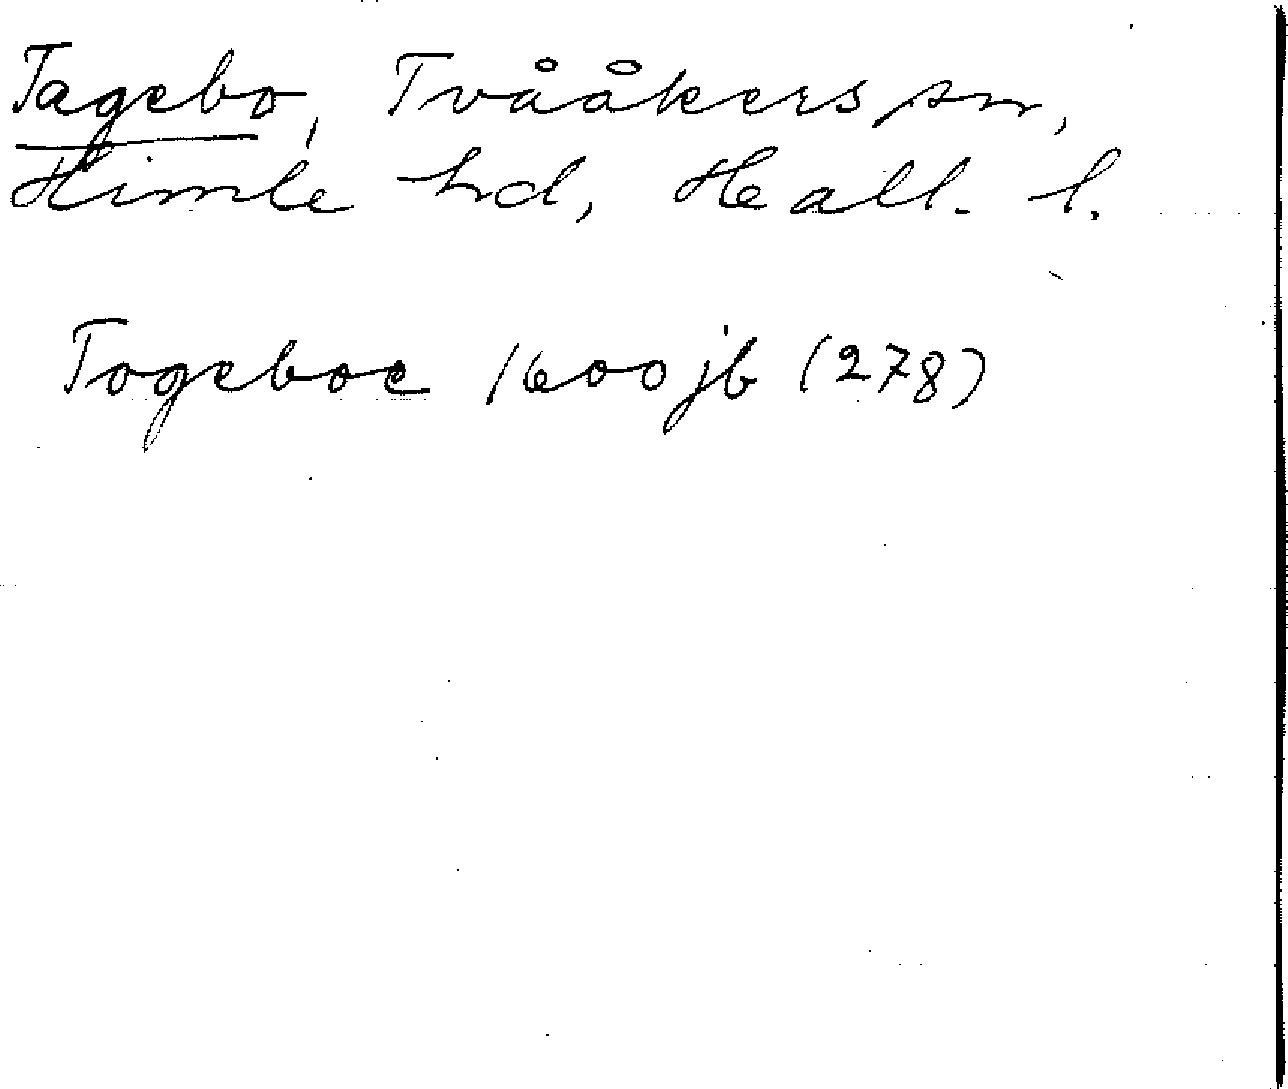 Tagebo, Tvååkers sn,
Himle hd, Hall. l.
Togeboe 1600 jb (278)